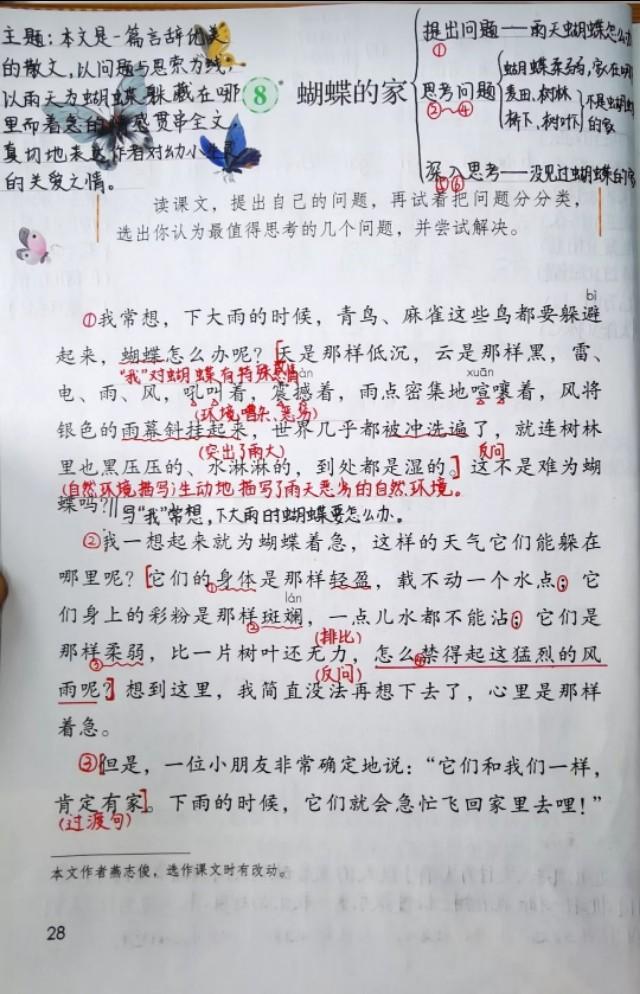 主题：本文是一篇言辞优美
的散文，以问题与思索为线，
以雨天为蝴蝶躲藏在哪
里而着急的 感贯串全文，
真切地表 作者对幼小
的关爱之情。
提出问题——雨天蝴蝶怎么
①
思考问题
②~④
蝴蝶柔弱，家在哪
麦田、树林
桥下、树叶下
不是蝴蝶
的家
深入思考——没见过蝴蝶的
⑤⑥
8 蝴蝶的家
读课文，提出自己的问题，再试着把问题分分类，
选出你认为最值得思考的几个问题，并尝试解决。
bì
①我常想，下大雨的时候，青鸟、麻雀这些鸟都要躲避
起来，蝴蝶怎么办呢？[天是那样低沉，云是那样黑，雷、
"我"对蝴蝶有特殊 xuān
电、雨、风，吼叫着，震撼着，雨点密集地喧嚷着，风将
(环境嘈杂、恶劣)
银色的雨幕斜挂起来，世界几乎都被冲洗遍了，就连树林
(突出了雨大) 反问
里也黑压压的、水淋淋的，到处都是湿的。]这不是难为蝴
(自然环境描写)生动地描写了雨天恶劣的自然环境。
蝶吗?‖写"我"常想，下大雨时蝴蝶要怎么办。
②我一想起来就为蝴蝶着急，这样的天气它们能躲在
哪里呢？[它们的身体是那样轻盈，载不动一个水点；它
① lán
们身上的彩粉是那样斑斓，一点儿水都不能沾；它们是
② (排比)
那样柔弱，比一片树叶还无力，怎么禁得起这猛烈的风
③ (反问) ④
雨呢?]想到这里，我简直没法再想下去了，心里是那样
着急。
③[但是，一位小朋友非常确定地说：“它们和我们一样，
肯定有家]。下雨的时候，它们就会急忙飞回家里去哩！”
(过渡句)
本文作者燕志俊，选作课文时有改动。
28